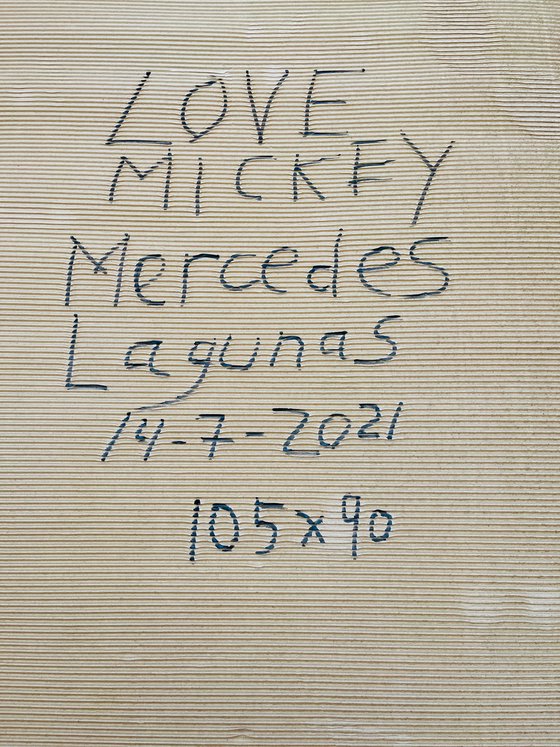 LOVE
MICKEY
Mercedes
Lagunas
14-7-2021
105x90